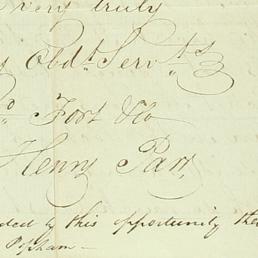 very truly
Obd.t Serv.ts
Fort &Co
Henry Parr,
ded by this opportunity the
Popham —